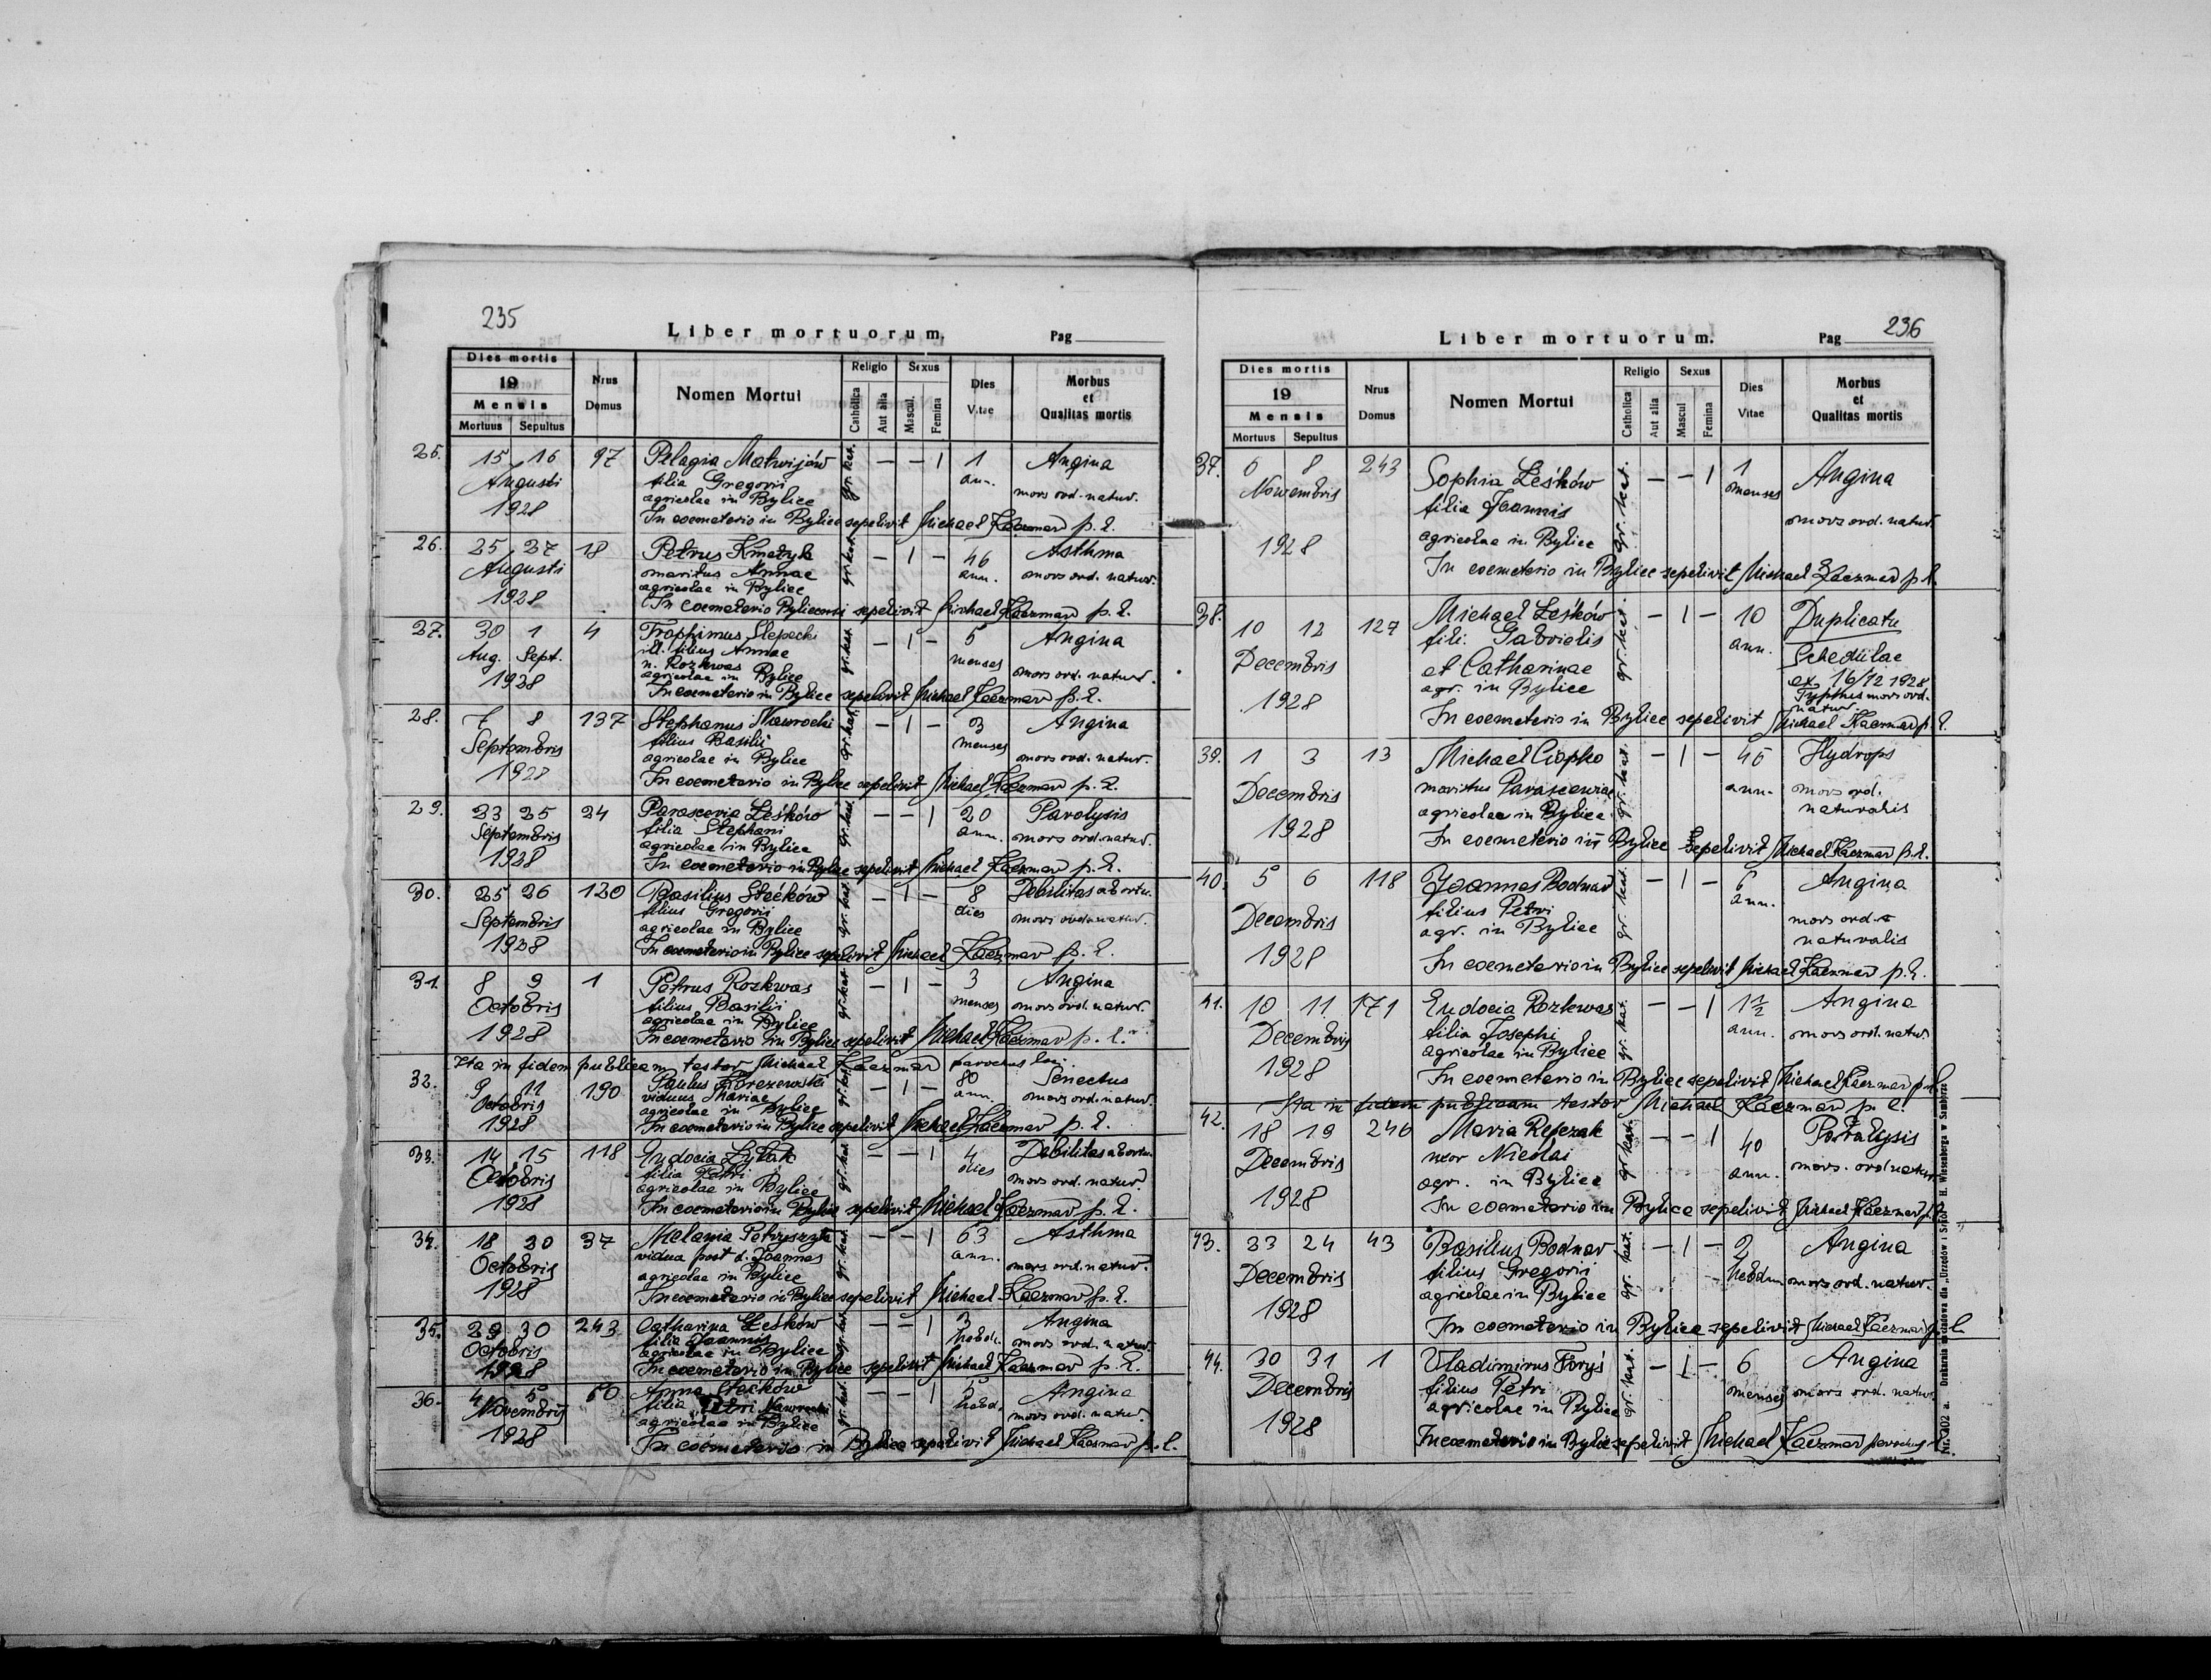 235
Liber mortuorum.
Pag
Dies mortis
19
Mensis
Mortuus Sepultus
Nrus Domus
Nomen Mortui
Religio
Catholica
Aut alia
Sexus
Mascul.
Femina
Dies Vitae
Morbus et Qualitas mortis
25. 15 16 97 Pelagia Matwijów gr. kat. — — 1 1 Angina
Augusti filia Gregorii ann. mors ord. natur.
agricolae in Bylice
1928
In coemeterio in Bylice sepelivit Michael Kaczmar p. l.
26. 25 27 18 Petrus Kmetyk gr. kat. — 1 — 46 Asthma
Augusti maritus Annae ann. mors ord. natur.
agricolae in Bylice
1928
In coemeterio Byliceensi sepelivit Michael Kaczmar p. l.
27. 30 1 4 Trophimus Slepecki gr. kat. — 1 — 5 Angina
Aug. Sept. ill. filius Annae menses
n. Rozkwas mors ord. natur.
1928 agricolae in Bylice
In coemeterio in Bylice sepelivit Michael Kaczmar p. l.
28. 7 8 137 Stephanus Nawrocki gr. kat. — 1 — 3 Angina
Septembris filius Basilii menses
agricolae in Bylice mors ord. natur.
1928
In coemeterio in Bylice sepelivit Michael Kaczmar p. l.
29. 23 25 24 Parascevia Leśków gr. kat. — — 1 20 Paralysis
Septembris filia Stephani ann. mors ord. natur.
agricolae in Bylice
1928
In coemeterio in Bylice sepelivit Michael Kaczmar p. l.
30. 25 26 120 Basilius Stećków gr. kat. — 1 — 8 Debilitas a bortu.
Septembris filius Gregorii dies mors ord. natur.
agricolae in Bylice
1928
In coemeterio in Bylice sepelivit Michael Kaczmar p. l.
31. 8 9 1 Petrus Rozkwas gr. kat. — 1 — 3 Angina
Octobris filius Basilii menses mors ord. natur.
agricolae in Bylice
1928
In coemeterio in Bylice sepelivit Michael Kaczmar p. l.
Ita in fidem publicam testor Michael Kaczmar parochus loci
32. 9 11 190 Paulus gr. kat. — 1 — 80 Senectus
Octobris viduus Mariae ann. mors ord. natur.
agricolae in Bylice
1928
In coemeterio in Bylice sepelivit Michael Kaczmar p. l.
33. 14 15 118 Eudocia gr. kat. — — 1 4 Debilitas a bortu.
Octobris filia Petri dies mors ord. natur.
agricolae in Bylice
1928
In coemeterio in Bylice sepelivit Michael Kaczmar p. l.
34. 18 20 37 Melania gr. kat. — — 1 63 Asthma
Octobris vidua post d. Joannes ann. mors ord. natur.
agricolae in Bylice
1928
In coemeterio in Bylice sepelivit Michael Kaczmar p. l.
35. 29 30 243 Catharina Leśków gr. kat. — — 1 3 Angina
Octobris filia Joannis hebd. mors ord. natur.
agricolae in Bylice
1928
In coemeterio in Bylice sepelivit Michael Kaczmar p. l.
36. 4 5 60 Anna Stećków gr. kat. — — 1 Angina
Novembris filia Petri Nawrocki hebd. mors ord. natur.
agricolae in Bylice
1928
In coemeterio in Bylice sepelivit Michael Kaczmar p. l.
236
Liber mortuorum.
Pag
Dies mortis
19
Mensis
Mortuus Sepultus
Nrus Domus
Nomen Mortui
Religio
Catholica
Aut alia
Sexus
Mascul
Femina
Dies Vitae
Morbus et Qualitas mortis
37. 6 8 243 Sophia Leśków gr. kat. — — 1 1 Angina
Novembris filia Joannis menses
agricolae in Bylice mors ord. natur.
1928
In coemeterio in Bylice sepelivit Michael Kaczmar p. l.
38. 10 12 127 Michael Leśków gr. kat. — 1 — 10 Duplicatu
fili. Gabrielis ann. Schedulae
Decembris et Catharinae ex 16/12 1928
agr. in Bylice Typhus mors ord. natur.
1928
In coemeterio in Bylice sepelivit Michael Kaczmar p. l.
39. 1 3 13 Michael Ciapko gr. kat. — 1 — 45 Hydrops
Decembris maritus Parasceviae ann. mors ord.
agricolae in Bylice naturalis
1928
In coemeterio in Bylice sepelivit Michael Kaczmar p. l.
40. 5 6 118 Joannes Bodnar gr. kat. — 1 — 6 Angina
Decembris filius Petri ann. mors ord.
agr. in Bylice naturalis
1928
In coemeterio in Bylice sepelivit Michael Kaczmar p. l.
41. 10 11 171 Eudocia Rozkwas gr. kat. — — 1 1½ Angina
Decembris filia Josephi ann. mors ord. natur.
agricolae in Bylice
1928
In coemeterio in Bylice sepelivit Michael Kaczmar p. l.
Ita in fidem publicam testor Michael Kaczmar p. l.
42. 18 19 246 Maria Repczak gr. kat. — — 1 40 Paralysis
Decembris uxor Nicolai ann. mors. ord natur.
agr. in Bylice
1928
In coemeterio in Bylice sepelivit Michael Kaczmar p. l.
43. 23 24 43 Basilius Bodnar gr. kat. — 1 — 2 Angina
Decembris filius Gregorii hebdm mors ord. natur.
agricolae in Bylice
1928
In coemeterio in Bylice sepelivit Michael Kaczmar p. l.
44. 30 31 1 Vladimirus Foryś gr. kat. — 1 — 6 Angina
Decembris filius Petri menses mors ord. natur.
agricolae in Bylice
1928
In coemeterio in Bylice sepelivit Michael Kaczmar parochus
Drukarnia nakładowa dla „Urzędów i Szkół" H. Wiesenberga w Samborze